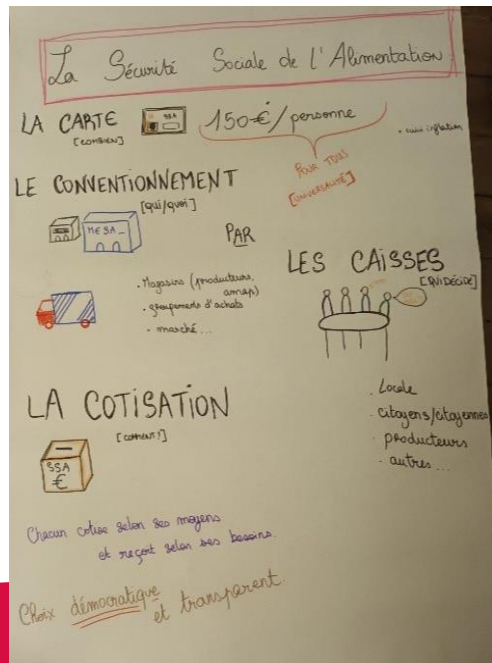 La Sécurité Sociale de l'Alimentation
LA CARTE SSA 150€/personne
[COMBIEN]
• suivi inflation
POUR TOUS
[UNIVERSALITÉ]
LE CONVENTIONNEMENT
[qui/quoi]
PAR
LES CAISSES
[QUI DÉCIDE]
• Magasins (producteurs,
amap)
• groupements d'achats
• marché...
• Locale
• citoyens/citoyennes
• producteurs
• autres...
LA COTISATION
[COMMENT?]
SSA
€
Chacun cotise selon ses moyens
et reçoit selon ses besoins.
Choix démocratique et transparent.